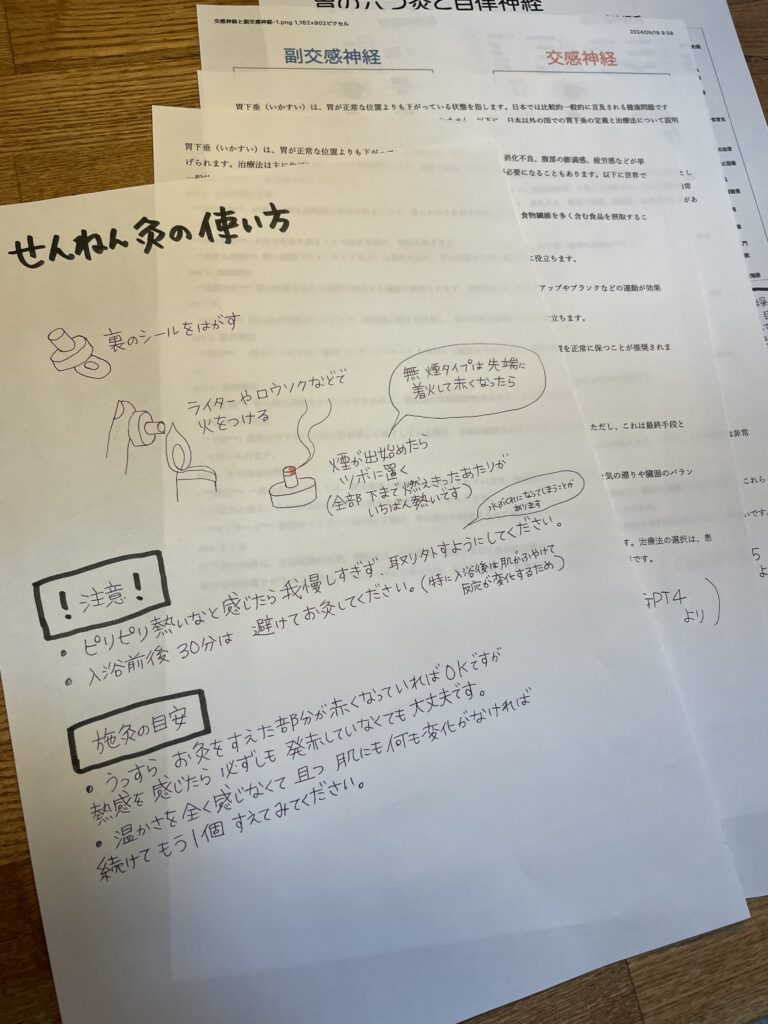 胃の六つ灸と自律神経
交感神経と副交感神経-1.png 1,162×902ピクセル
2024/09/18 9:58
副交感神経
交感神経
胃下垂（いかすい）は、胃が正常な位置よりも下がっている状態を指します。日本では比較的一般的に言及される健康問題です
以下に、日本以外の国での胃下垂の定義と治療法について説明
胃下垂（いかすい）は、胃が正常な位置よりも下が
消化不良、腹部の膨満感、疲労感などが挙
げられます。治療法は主に
必要になることもあります。以下に世界で
食物繊維を多く含む食品を摂取するこ
に役立ちます。
アップやプランクなどの運動が効果
立ちます。
を正常に保つことが推奨されま
ただし、これは最終手段と
は非常
気の滞りや臓器のバラン
これら
す。治療法の選択は、患
です。
GPT4
より）
せんねん灸の使い方
裏のシールをはがす
ライターやロウソクなどで
火をつける
無煙タイプは先端に
着火して赤くなったら
煙が出始めたら
ツボに置く
(全部下まで燃えきったあたりが
いちばん熱いです)
水ぶくれになってしまうことが
あります
！注意！
・ピリピリ熱いなと感じたら我慢しすぎず、取りはずすようにしてください。
・入浴前後30分は 避けてお灸してください。(特に入浴後は肌がふやけて
反応が変化するため)
施灸の目安
・うっすら お灸をすえた部分が赤くなっていればOKですが
熱感を感じたら 必ずしも 発赤していなくても大丈夫です。
・温かさを全く感じなくて 且つ 肌にも何も変化がなければ
続けてもう1個 すえてみてください。